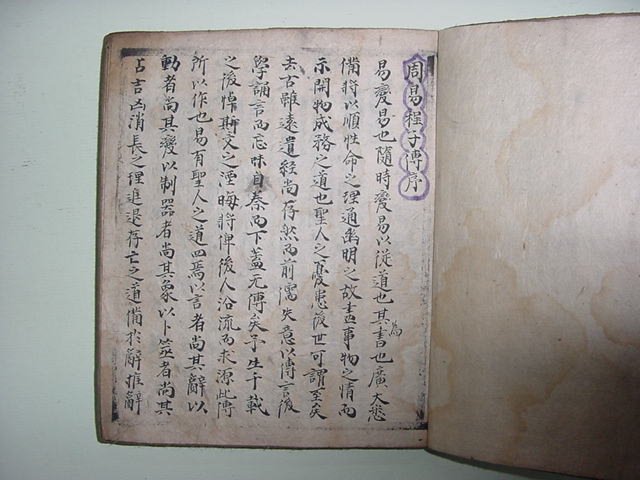 周易程子傳序
易變易也隨時變易以從道也其爲書也廣大悉
備將以順性命之理通幽明之故盡事物之情而
示開物成務之道也聖人之憂患後世可謂至矣
去古雖遠遺經尚存然而前儒失意以傳言後
學誦言而忘味自秦而下蓋无傳矣予生千載
之後悼斯文之湮晦將俾後人沿流而求源此傳
所以作也易有聖人之道四焉以言者尚其辭以
動者尚其變以制器者尚其象以卜筮者尚其
占吉凶消長之理進退存亡之道備於辭推辭